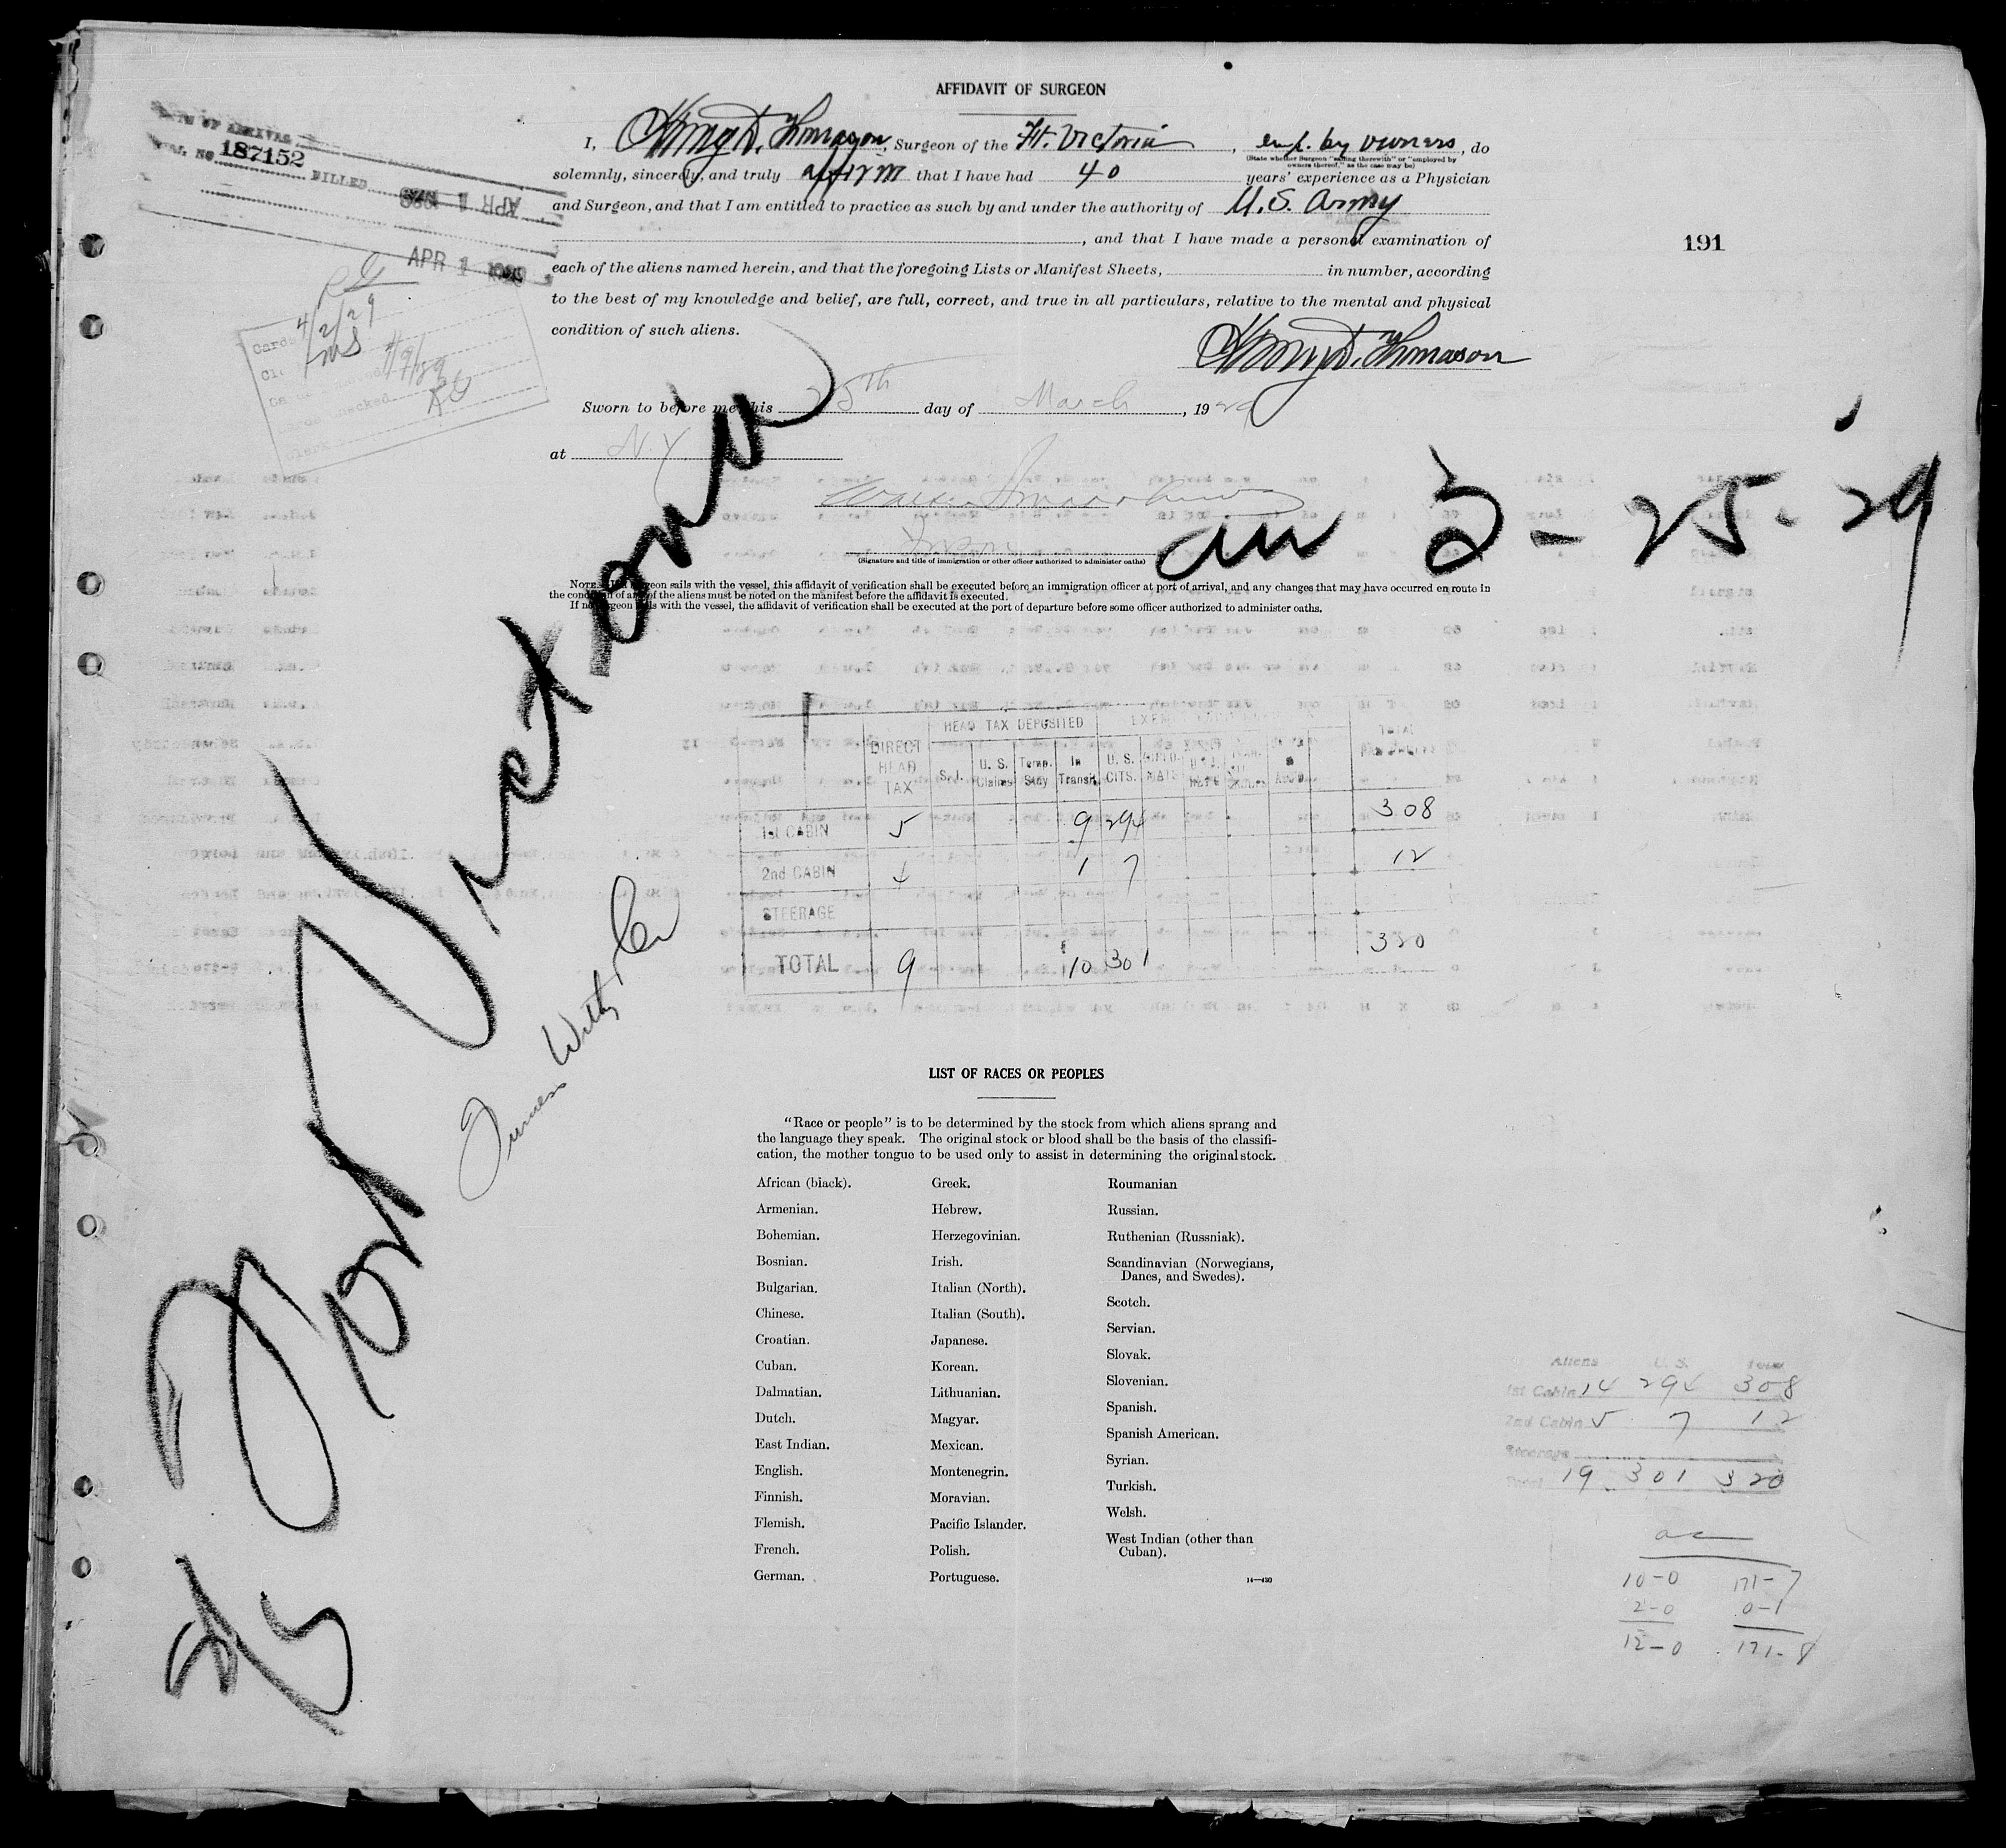 AFFIDAVIT OF SURGEON
I, Henry D. Thomason, Surgeon of the Ft. Victoria, empl. by owners, do
(State whether Surgeon "sailing therewith" or "employed by owners thereof," as the case may be)
solemnly, sincerely, and truly affirm that I have had 40 years' experience as a Physician
and Surgeon, and that I am entitled to practice as such by and under the authority of U.S. Army
, and that I have made a personal examination of
each of the aliens named herein, and that the foregoing Lists or Manifest Sheets, in number, according
to the best of my knowledge and belief, are full, correct, and true in all particulars, relative to the mental and physical
condition of such aliens.
Henry D. Thomason
Sworn to before me this 25th day of March, 1929
at N.Y
Insp.
(Signature and title of immigration or other officer authorized to administer oaths)
NOTE.—If a surgeon sails with the vessel, this affidavit of verification shall be executed before an immigration officer at port of arrival, and any changes that may have occurred en route in
the condition of any of the aliens must be noted on the manifest before the affidavit is executed.
If no surgeon sails with the vessel, the affidavit of verification shall be executed at the port of departure before some officer authorized to administer oaths.
191
DATE OF ARRIVAL
187152
BILLED
APR 1
APR 1
4/2/29
Cards
Fort Victoria
Furness Withy & Co
arr 3-25-29
HEAD TAX DEPOSITED
DIRECT HEAD TAX S.I. U.S. Claims Temp. Stay In Transit U.S. CITS.
1st CABIN 5 9 294 308
2nd CABIN 4 1 7 12
STEERAGE
TOTAL 9 10 301 320
LIST OF RACES OR PEOPLES
"Race or people" is to be determined by the stock from which aliens sprang and
the language they speak. The original stock or blood shall be the basis of the classifi-
cation, the mother tongue to be used only to assist in determining the original stock.
African (black).
Armenian.
Bohemian.
Bosnian.
Bulgarian.
Chinese.
Croatian.
Cuban.
Dalmatian.
Dutch.
East Indian.
English.
Finnish.
Flemish.
French.
German.
Greek.
Hebrew.
Herzegovinian.
Irish.
Italian (North).
Italian (South).
Japanese.
Korean.
Lithuanian.
Magyar.
Mexican.
Montenegrin.
Moravian.
Pacific Islander.
Polish.
Portuguese.
Roumanian
Russian.
Ruthenian (Russniak).
Scandinavian (Norwegians,
Danes, and Swedes).
Scotch.
Servian.
Slovak.
Slovenian.
Spanish.
Spanish American.
Syrian.
Turkish.
Welsh.
West Indian (other than
Cuban).
14—430
Aliens U.S. Total
1st Cabin 14 294 308
2nd Cabin 5 7 12
Steerage
Total 19 301 320
10-0 171-7
2-0 0-1
12-0 171-8